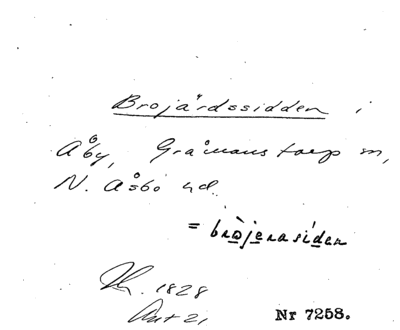 Brojårdssidden i
Åby, Gråmanstorp m,
N. Åsbo hd.
= bròjerasíden
1828
Ant 21
Nr 7258.